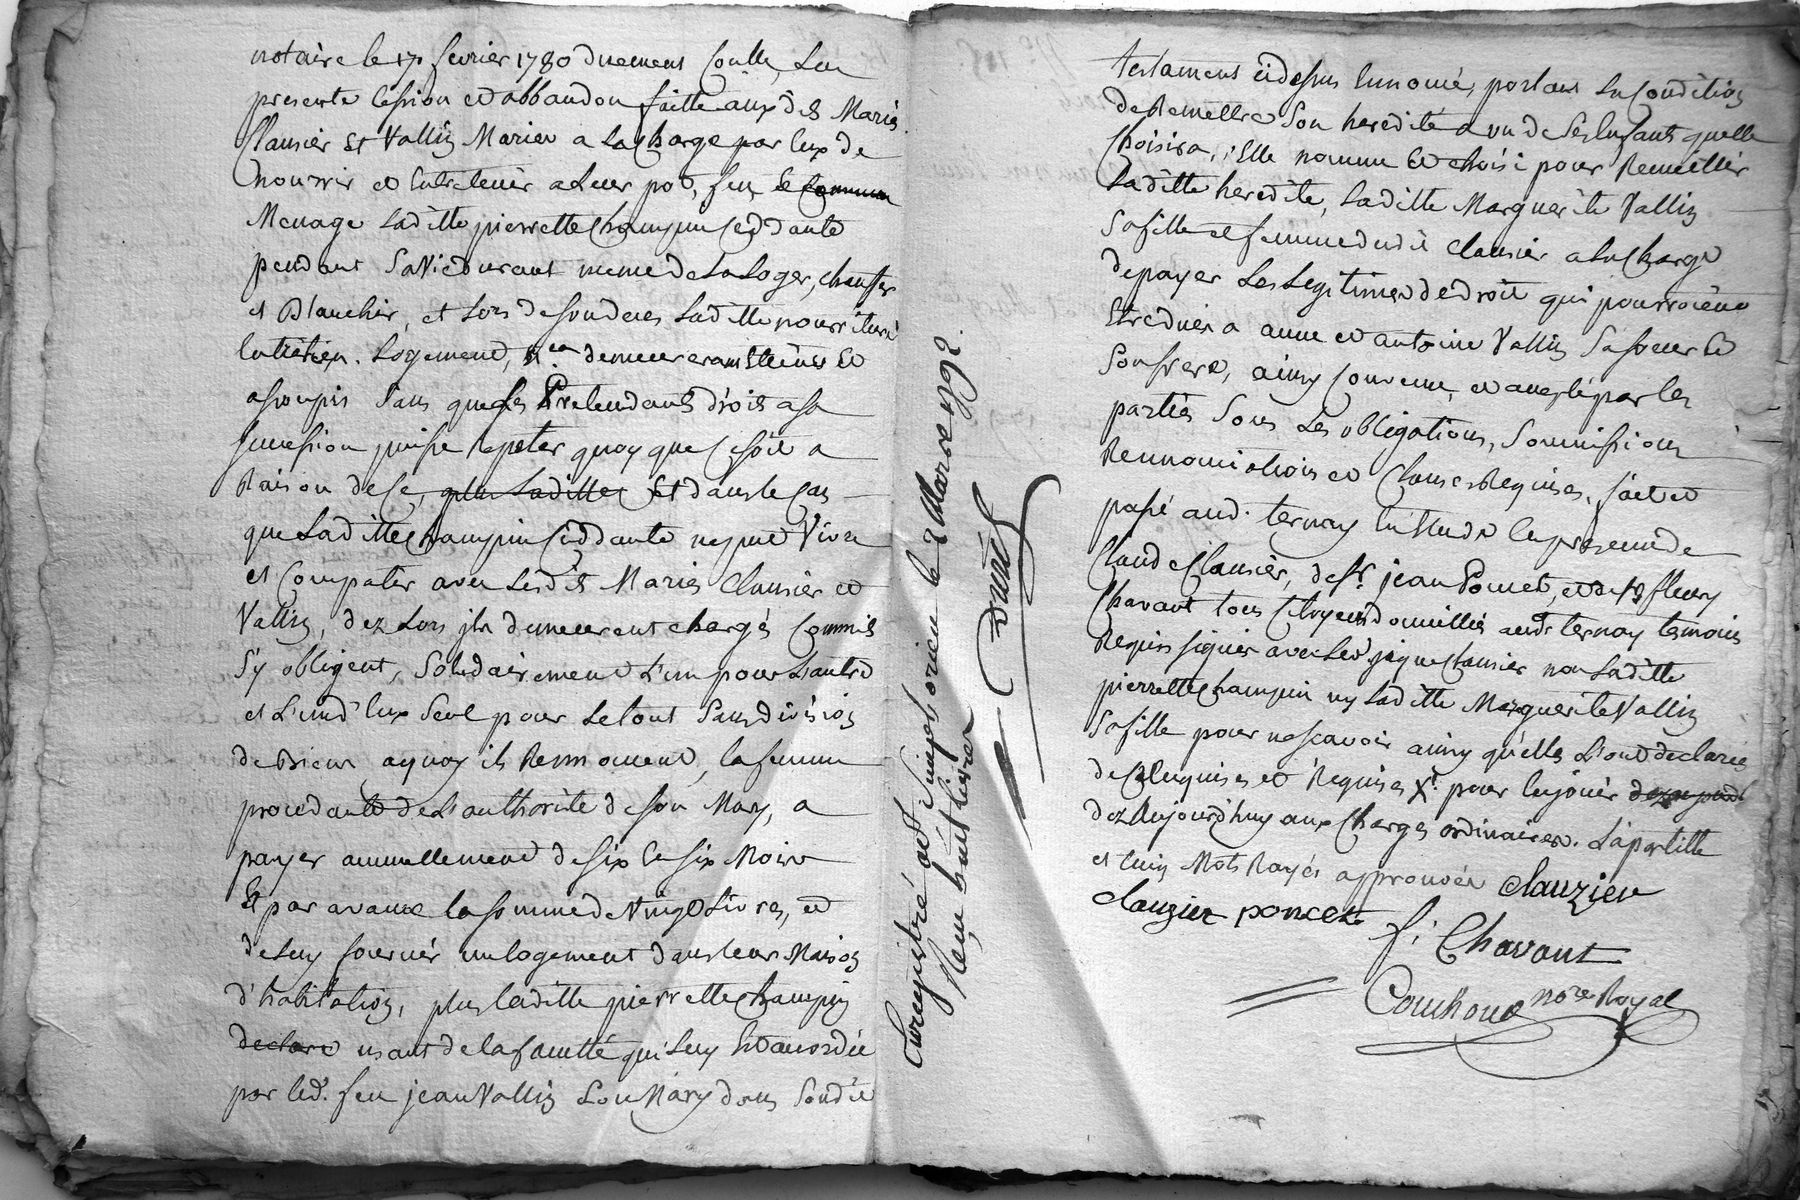 notaire le 17 fevrier 1780 duement Conllé, La
presente Cession et abbandon faitte aux dts Mariés
Clausier et Vallin Mariés a la Charge par Eux de
nourrir et Entretenir a Leur pot, feu, et Commun
Menage Laditte pierrette Champin Ceddante
pendant Sa Vie durant meme de La Loger, chauffer
et Blanchir, et Lors de son deces Laditte nourriture
Entretien. Logement, &.a demeureront Eteints et
assoupis Sans que Ses Pretendants droit a sa
succession puisse Repeter quoy que Ce soit a
Raison de Ce, plus Laditte Et dans le Cas
que Laditte Champin Ceddante ne put Vivre
et Compater avec Lesdts Mariés Clausier et
Vallin, dez Lors ils demeureront chargés Comme ils
S'y obligent, Solidairement L'un pour L'autre
et L'un d'Eux Seul pour Le tout Sans division
de Biens aquoy ils Rennoncent, la femme
procedante de L'authorité de son Mary, a
payer annuellement de six En six Mois
Et par avance la somme de Vingt Livres, et
de Luy fournir un logement dans leur Maison
d'habitation, plus laditte pierrette Champin
declare usant de la faculté qui Luy Est accordée
par led. feu jean Vallin Son Mary dans Sondit
Enregistré a St Simphorien le 2 Mars 1792.
Reçu huit livres
Durel
testament cidessus Ennoncé, portant La Condition
de Remettre Son heredité a un de Ses Enfants quelle
Choisira, Elle nomme et choisi pour Recueillir
Laditte heredité, Laditte Marguerite Vallin
Sa fille et femme dudit Clausier a La Charge
de payer Les Legitimes de droit qui pourroient
Etre dues a anne et antoine Vallin Sa soeur et
Son frere, ainsy Convenu et accepté par les
parties Sous Les obligations, Soummissions
Rennonciations et Clauses Requises, fait et
passé aud. ternay En Etude En presence de
Claude Clausier, de Sr. jean Poncet, et de Sr fleury
Chavant tous Citoyens domicilliés audt ternay temoins
Requis signés avec Led. jaque Clausier non Laditte
pierrette Champin ny Laditte Marguerite Vallin
Sa fille pour ne sçavoir ainsy qu'elles L'ont declaré
de Ce Enquises et Requises X. pour En jouir dez apresent
dez Aujourd'huy aux Charges ordinaires. L'apostille
et Cinq Mots Rayés approuvés Clauzier
Clauzier poncet
f. Chavant
Couchoud nore Royal